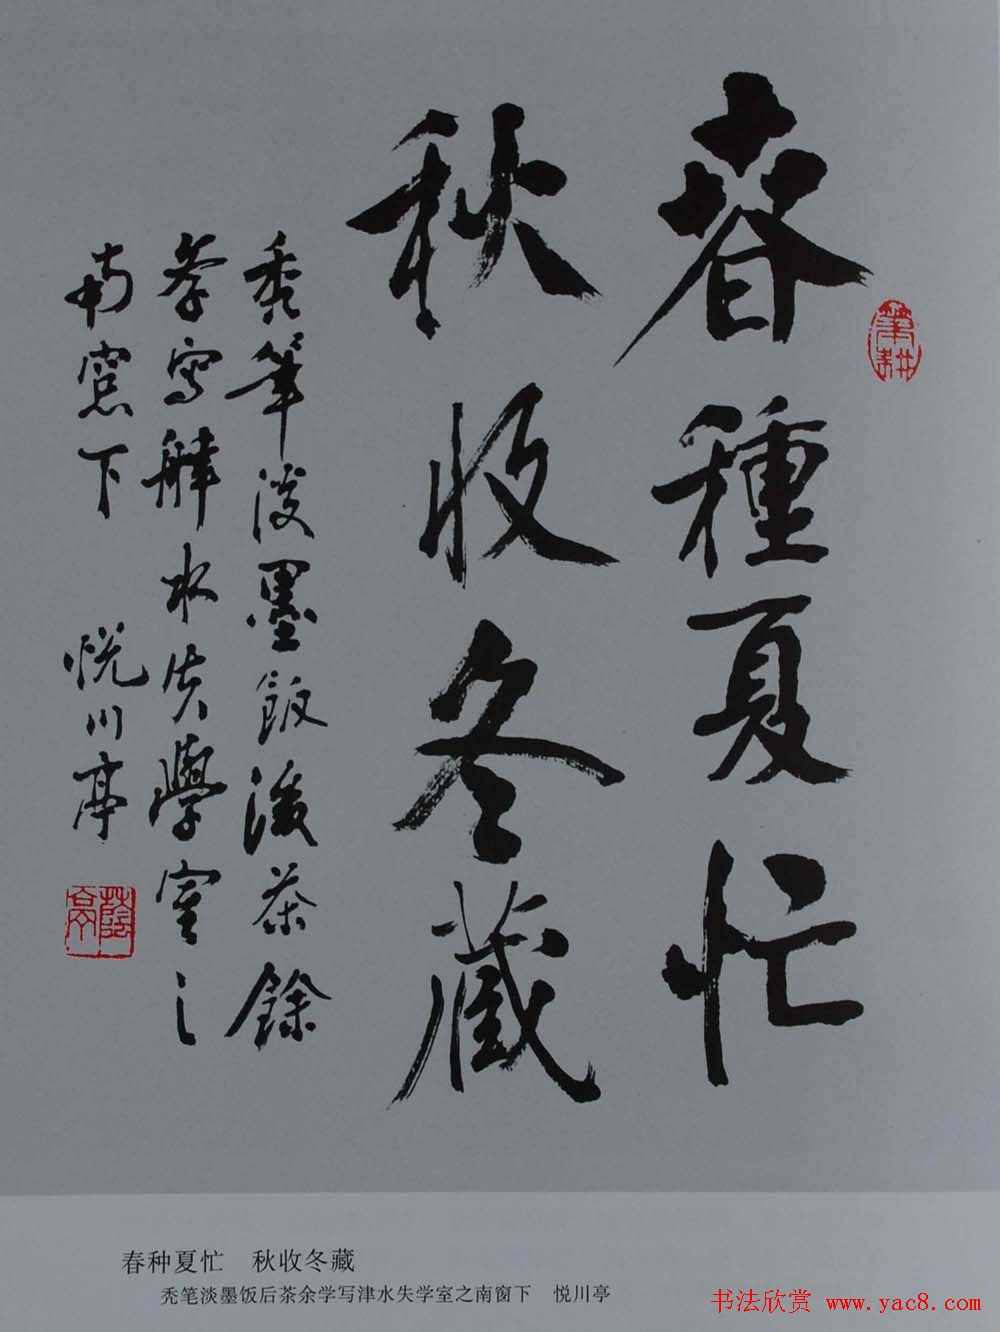 春種夏忙
秋收冬藏
秃筆淡墨飯後茶餘
学寫津水失學室之
南窓下 悦川亭
筆耕
春种夏忙 秋收冬藏
秃笔淡墨饭后茶余学写津水失学室之南窗下 悦川亭
书法欣赏 www.yac8.com